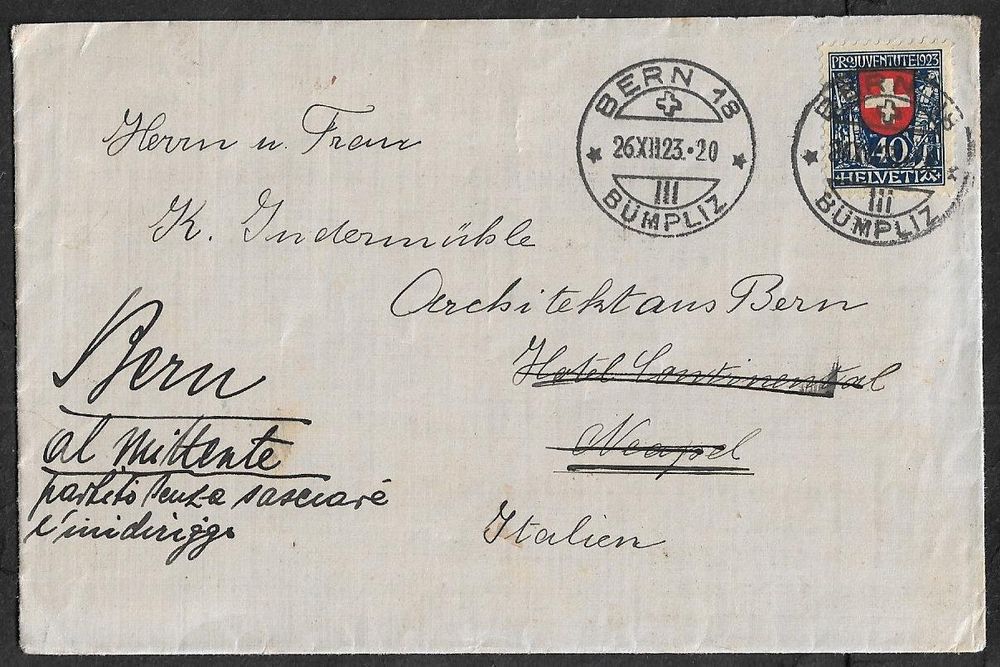 PRO JUVENTUTE 1923
40
HELVETIA
BERN 18
26.XII.23.-20
III
BÜMPLIZ
BERN 18
III
BÜMPLIZ
Herrn u. Frau
K. Indermühle
Architekt aus Bern
Hotel Continental
Neapel
Italien
Bern
al mittente
partito senza lasciare
l'inidirizzo